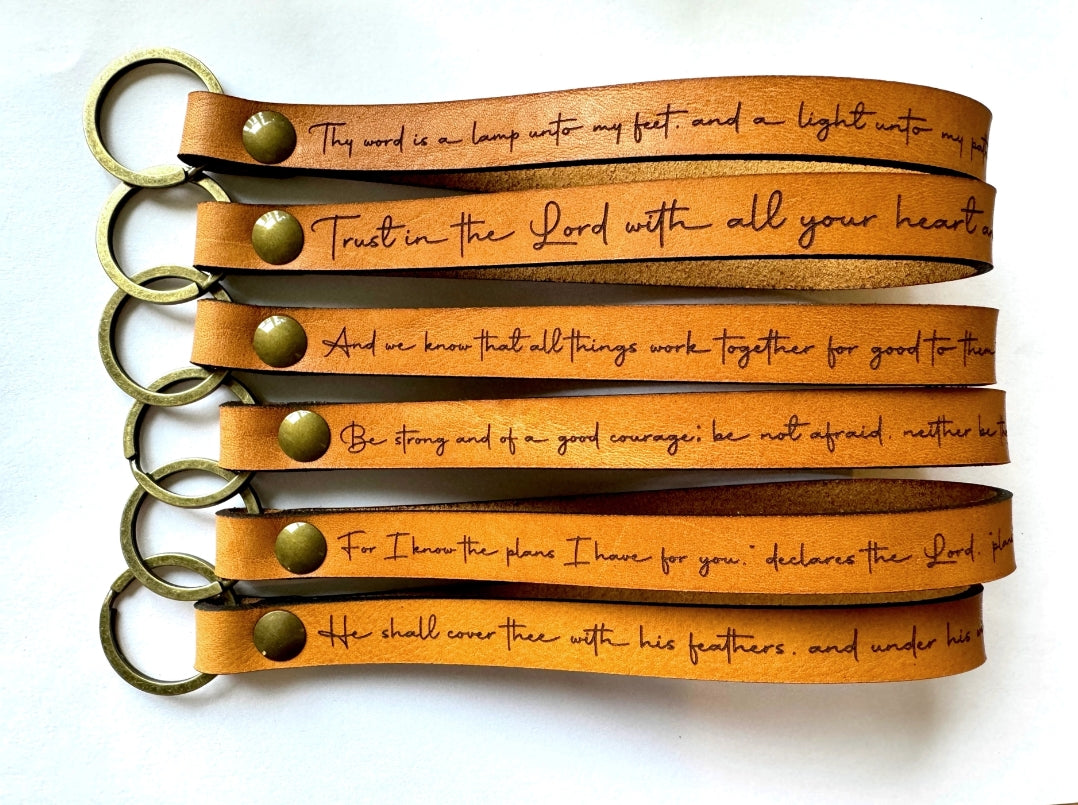 Thy word is a lamp unto my feet, and a light unto my
Trust in the Lord with all your heart
And we know that all things work together for good to them
Be strong and of a good courage; be not afraid, neither be
For I know the plans I have for you," declares the Lord, "plan
He shall cover thee with his feathers, and under his